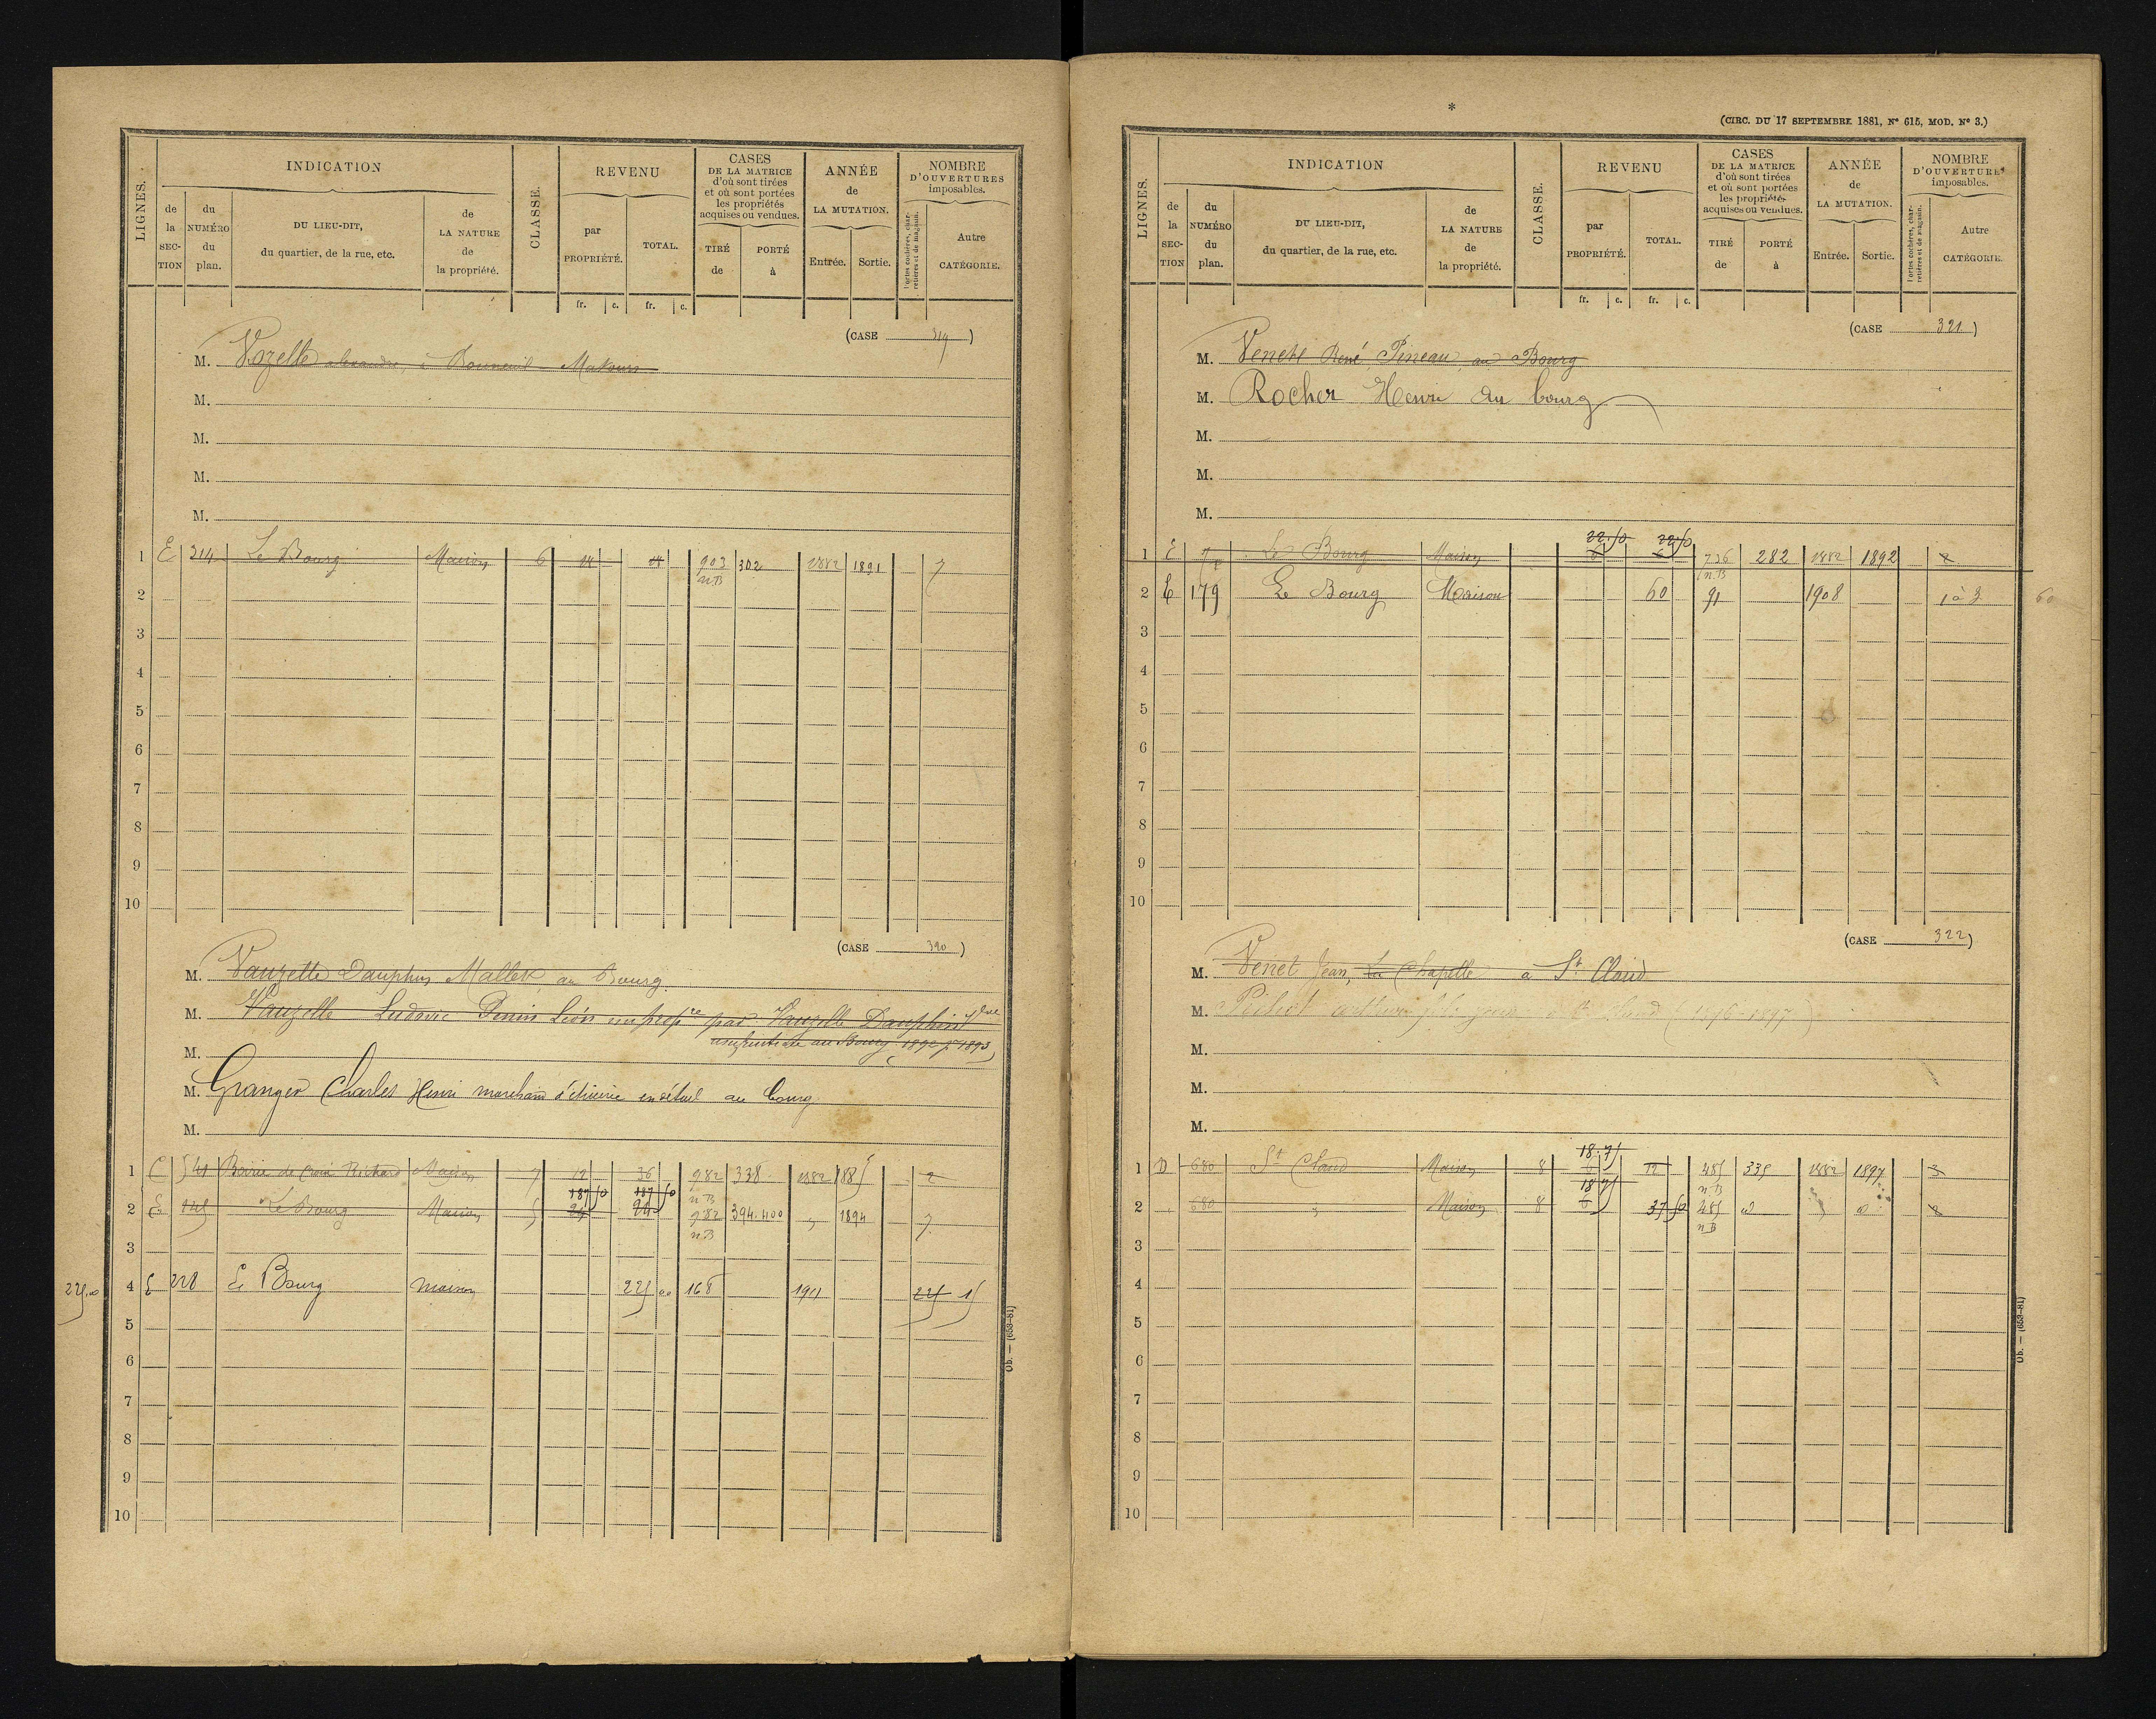 LIGNES.
INDICATION
de la SECTION
du NUMÉRO du plan.
DU LIEU-DIT, du quartier, de la rue, etc.
de LA NATURE de la propriété.
CLASSE.
REVENU
par PROPRIÉTÉ.
TOTAL.
fr. c. fr. c.
CASES
DE LA MATRICE
d'où sont tirées
et où sont portées
les propriétés
acquises ou vendues.
TIRÉ de
PORTÉ à
ANNÉE
de
LA MUTATION.
Entrée. Sortie.
NOMBRE
D'OUVERTURES
imposables.
Portes cochères, charretières et de magasin.
Autre CATÉGORIE.
(CASE )
M. Vozelle alexandre, à Bonneuil-Matours
M.
M.
M.
M.
1 E 214 Le Bourg Maison 6 14 14 903 302 1882 1891 7
n.B
2
3
4
5
6
7
8
9
10
(CASE )
M. Vauzelle Dauphin Mallet, au Bourg.
M. Vauzelle Ludovic Léon par Vauzelle Dauphin Vve
M. au Bourg. 1892 1893
M. Granger Charles Henri marchand d'épicerie en détail au bourg
M.
1 Croix Richard Maison 7 12 36 982 338 1882 1885 2
n.B
187 50 187 50
2 E 145 Le Bourg Maison 5 24 24 982 394.400 " 1894 7
n.B
3
225.00 4 E 228 Le Bourg maison 225 00 168 1911 225 15
5
6
7
8
9
10
Ob. — (653-81)
*
(CIRC. DU 17 SEPTEMBRE 1881, N° 615, MOD. N° 3.)
LIGNES.
INDICATION
de la SECTION
du NUMÉRO du plan.
DU LIEU-DIT, du quartier, de la rue, etc.
de LA NATURE de la propriété.
CLASSE.
REVENU
par PROPRIÉTÉ.
TOTAL.
fr. c. fr. c.
CASES
DE LA MATRICE
d'où sont tirées
et où sont portées
les propriétés
acquises ou vendues.
TIRÉ de
PORTÉ à
ANNÉE
de
LA MUTATION.
Entrée. Sortie.
NOMBRE
D'OUVERTURES
imposables.
Portes cochères, charretières et de magasin.
Autre CATÉGORIE.
(CASE 321)
M. René Pineau, au Bourg
M. Rocher Henri au bourg
M.
M.
M.
22.50 22.50
1 E Le Bourg Maison 6 6 736 282 1882 1892 2
n.B
2 E 179 Le Bourg Maison 60 91 1908 1 à 3 60
3
4
5
6
7
8
9
10
(CASE 322)
M. Venet Jean, La Chapelle à St. Claud
M. St Claud (1896-1897)
M.
M.
M.
18.75
1 D 680 St Claud Maison 8 6 12 485 335 1882 1897 3
n.B
18.75
2 " 680 " Maison 8 6 37 50 485 2
n.B
3
4
5
6
7
8
9
10
Ob. — (653-81)